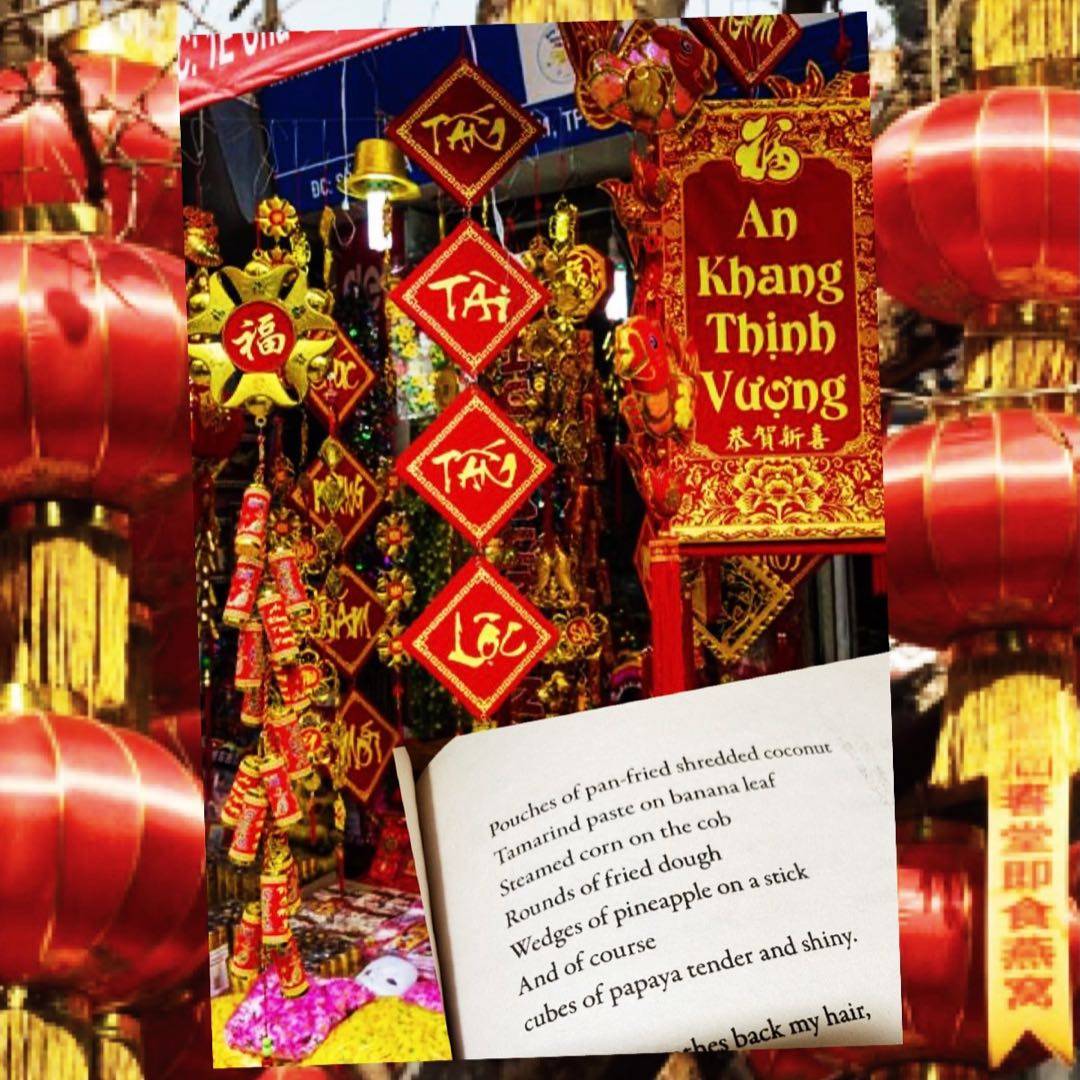 TẤN
TÀI
TẤN
LỘC
福
福
An
Khang
Thịnh
Vượng
恭賀新喜
ĐC: S
Pouches of pan-fried shredded coconut
Tamarind paste on banana leaf
Steamed corn on the cob
Rounds of fried dough
Wedges of pineapple on a stick
And of course
cubes of papaya tender and shiny.
back my hair,
春堂即食燕窝